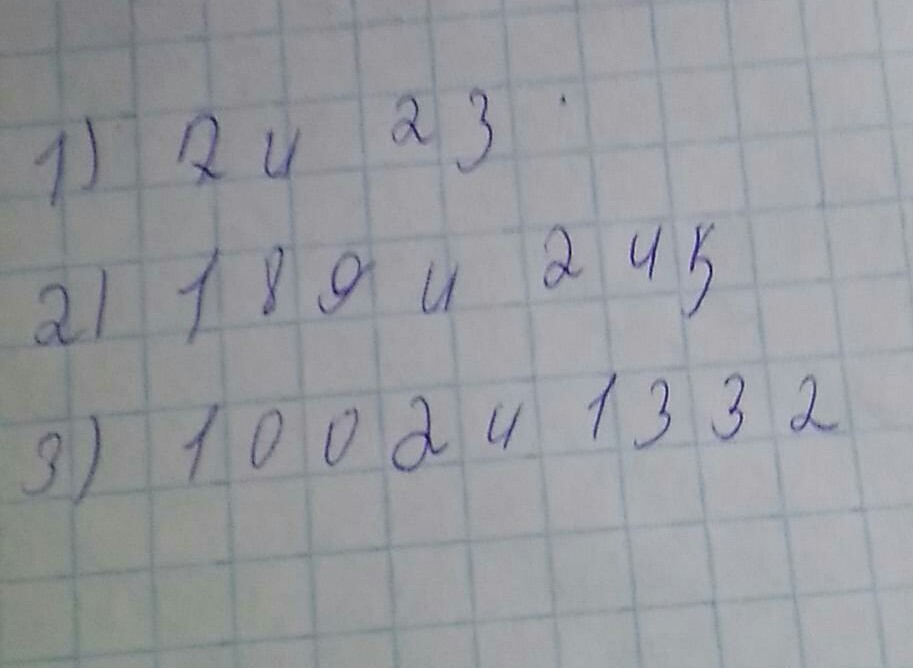 1) 7 и 23
2) 189 и 245
3) 1002 и 1332